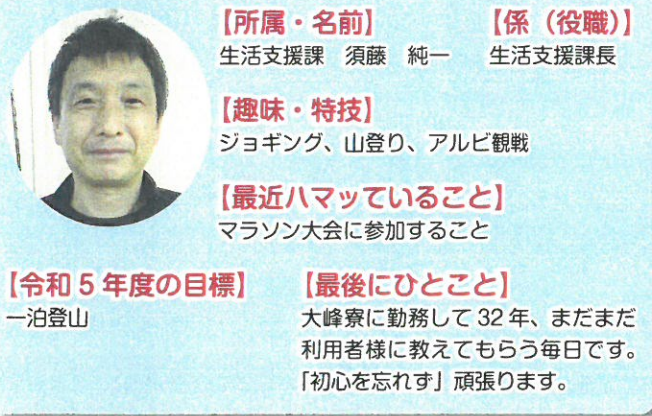 【所属・名前】
生活支援課　須藤　純一
【係（役職）】
生活支援課長
【趣味・特技】
ジョギング、山登り、アルビ観戦
【最近ハマッていること】
マラソン大会に参加すること
【令和５年度の目標】
一泊登山
【最後にひとこと】
大峰寮に勤務して 32 年、まだまだ
利用者様に教えてもらう毎日です。
「初心を忘れず」頑張ります。